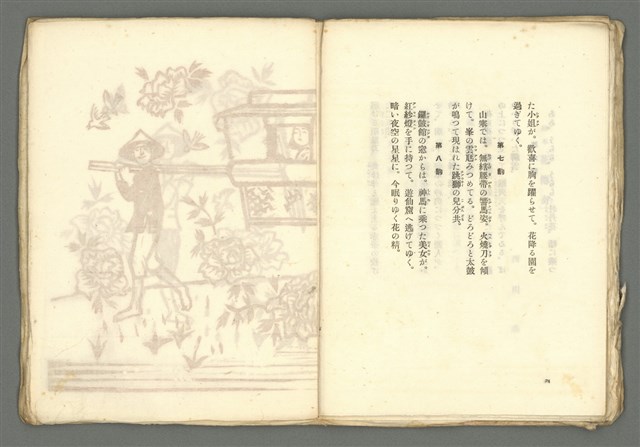 た小姐が、歡喜に胸を躍らせて、花降る園を
過ぎてゆく。
第七齣
山寨では、無緣腰帶の響馬姿。火燒刀を傾
けて、峯の雲厩みつめてる。どろどろと太鼓
が鳴つて現はれた跳獅の兒分共。
第八齣
髑髏館の窓からは、神馬に乘つた美女が、
紅紗燈を手に持つて、遊仙窟へ逃げてゆく。
暗い夜空の星星に、今眠りゆく花の精。